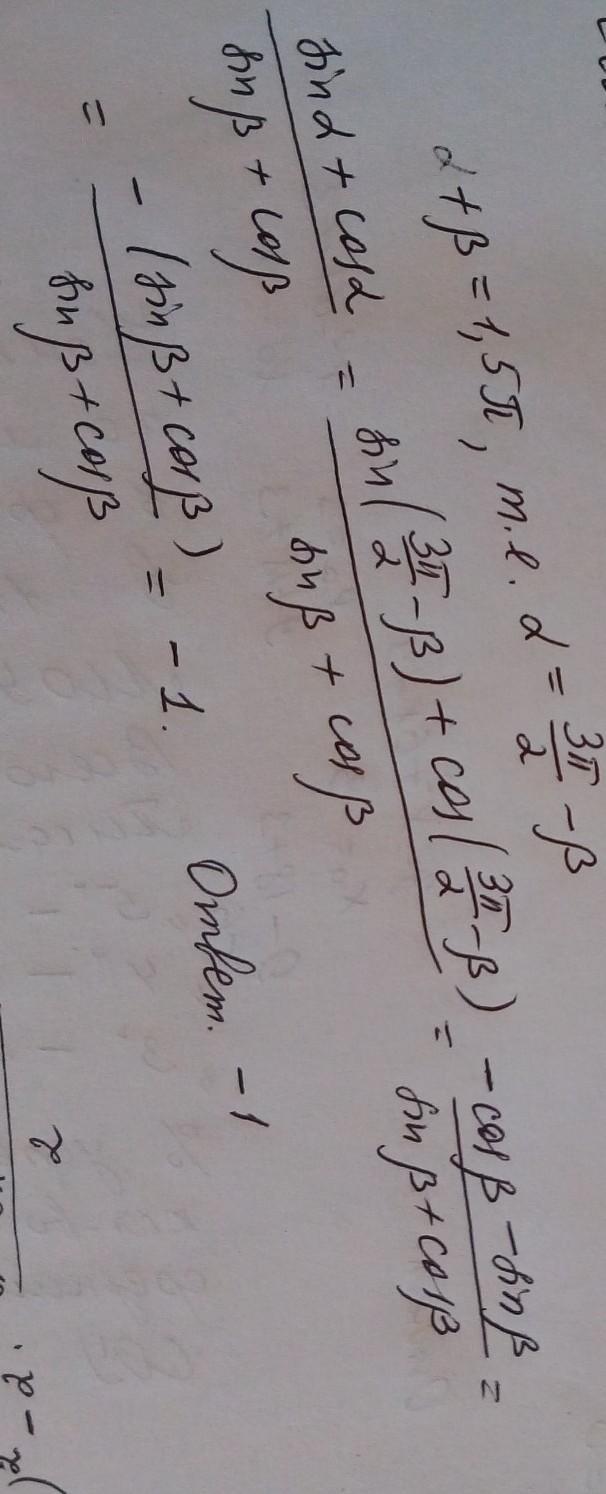 α + β = 1,5π, т.е. α = 3π/2 - β
(sin α + cos α)/(sin β + cos β) = (sin(3π/2 - β) + cos(3π/2 - β))/(sin β + cos β) = (-cos β - sin β)/(sin β + cos β) =
= (-(sin β + cos β))/(sin β + cos β) = -1. Ответ. -1
2
)² - 2.